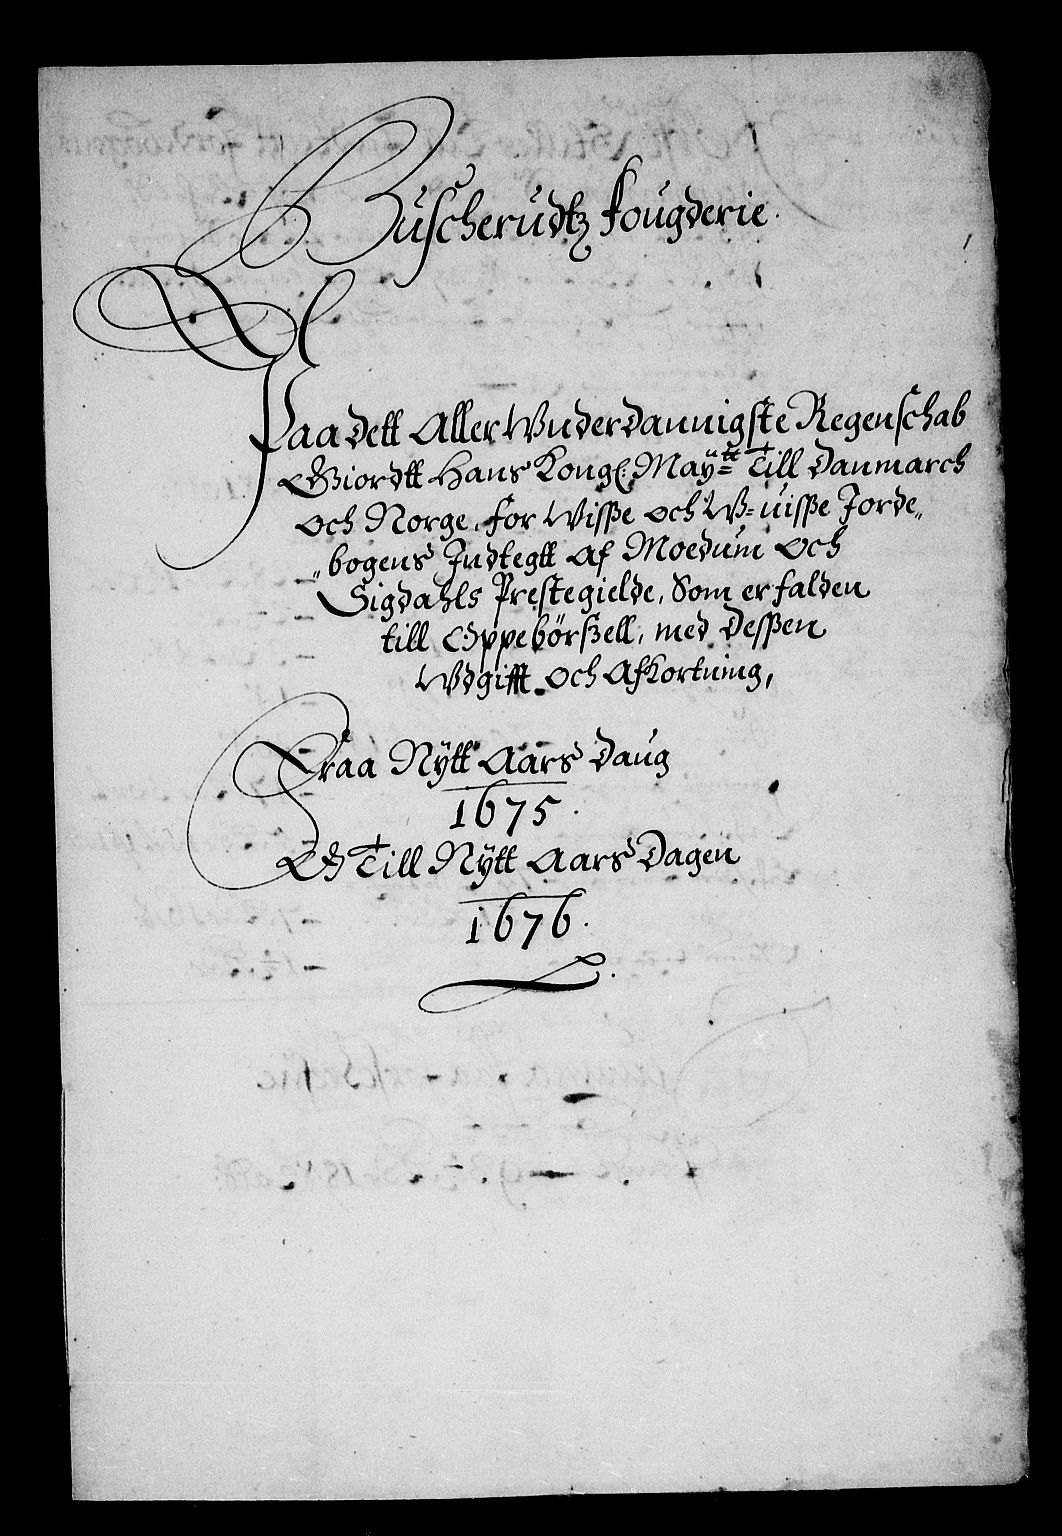 Buscherudtz fougderie.
Paa dett Aller Wnderdannigste Regenschab
Giordtt Hans Kongl: Maÿ:tt Till Danmarch
och Norge, for Wisse och W=uisse Jorde„
„bogens Indtegtt af Moedum och
Sigdahls Prestegielde, Som er falden
till Oppebörszell, med Dessen
Wdgifft och Afkortning,
Fraa Nÿtt Aars Daug
1675.
Og Till Nÿtt Aars Dagen
1676.